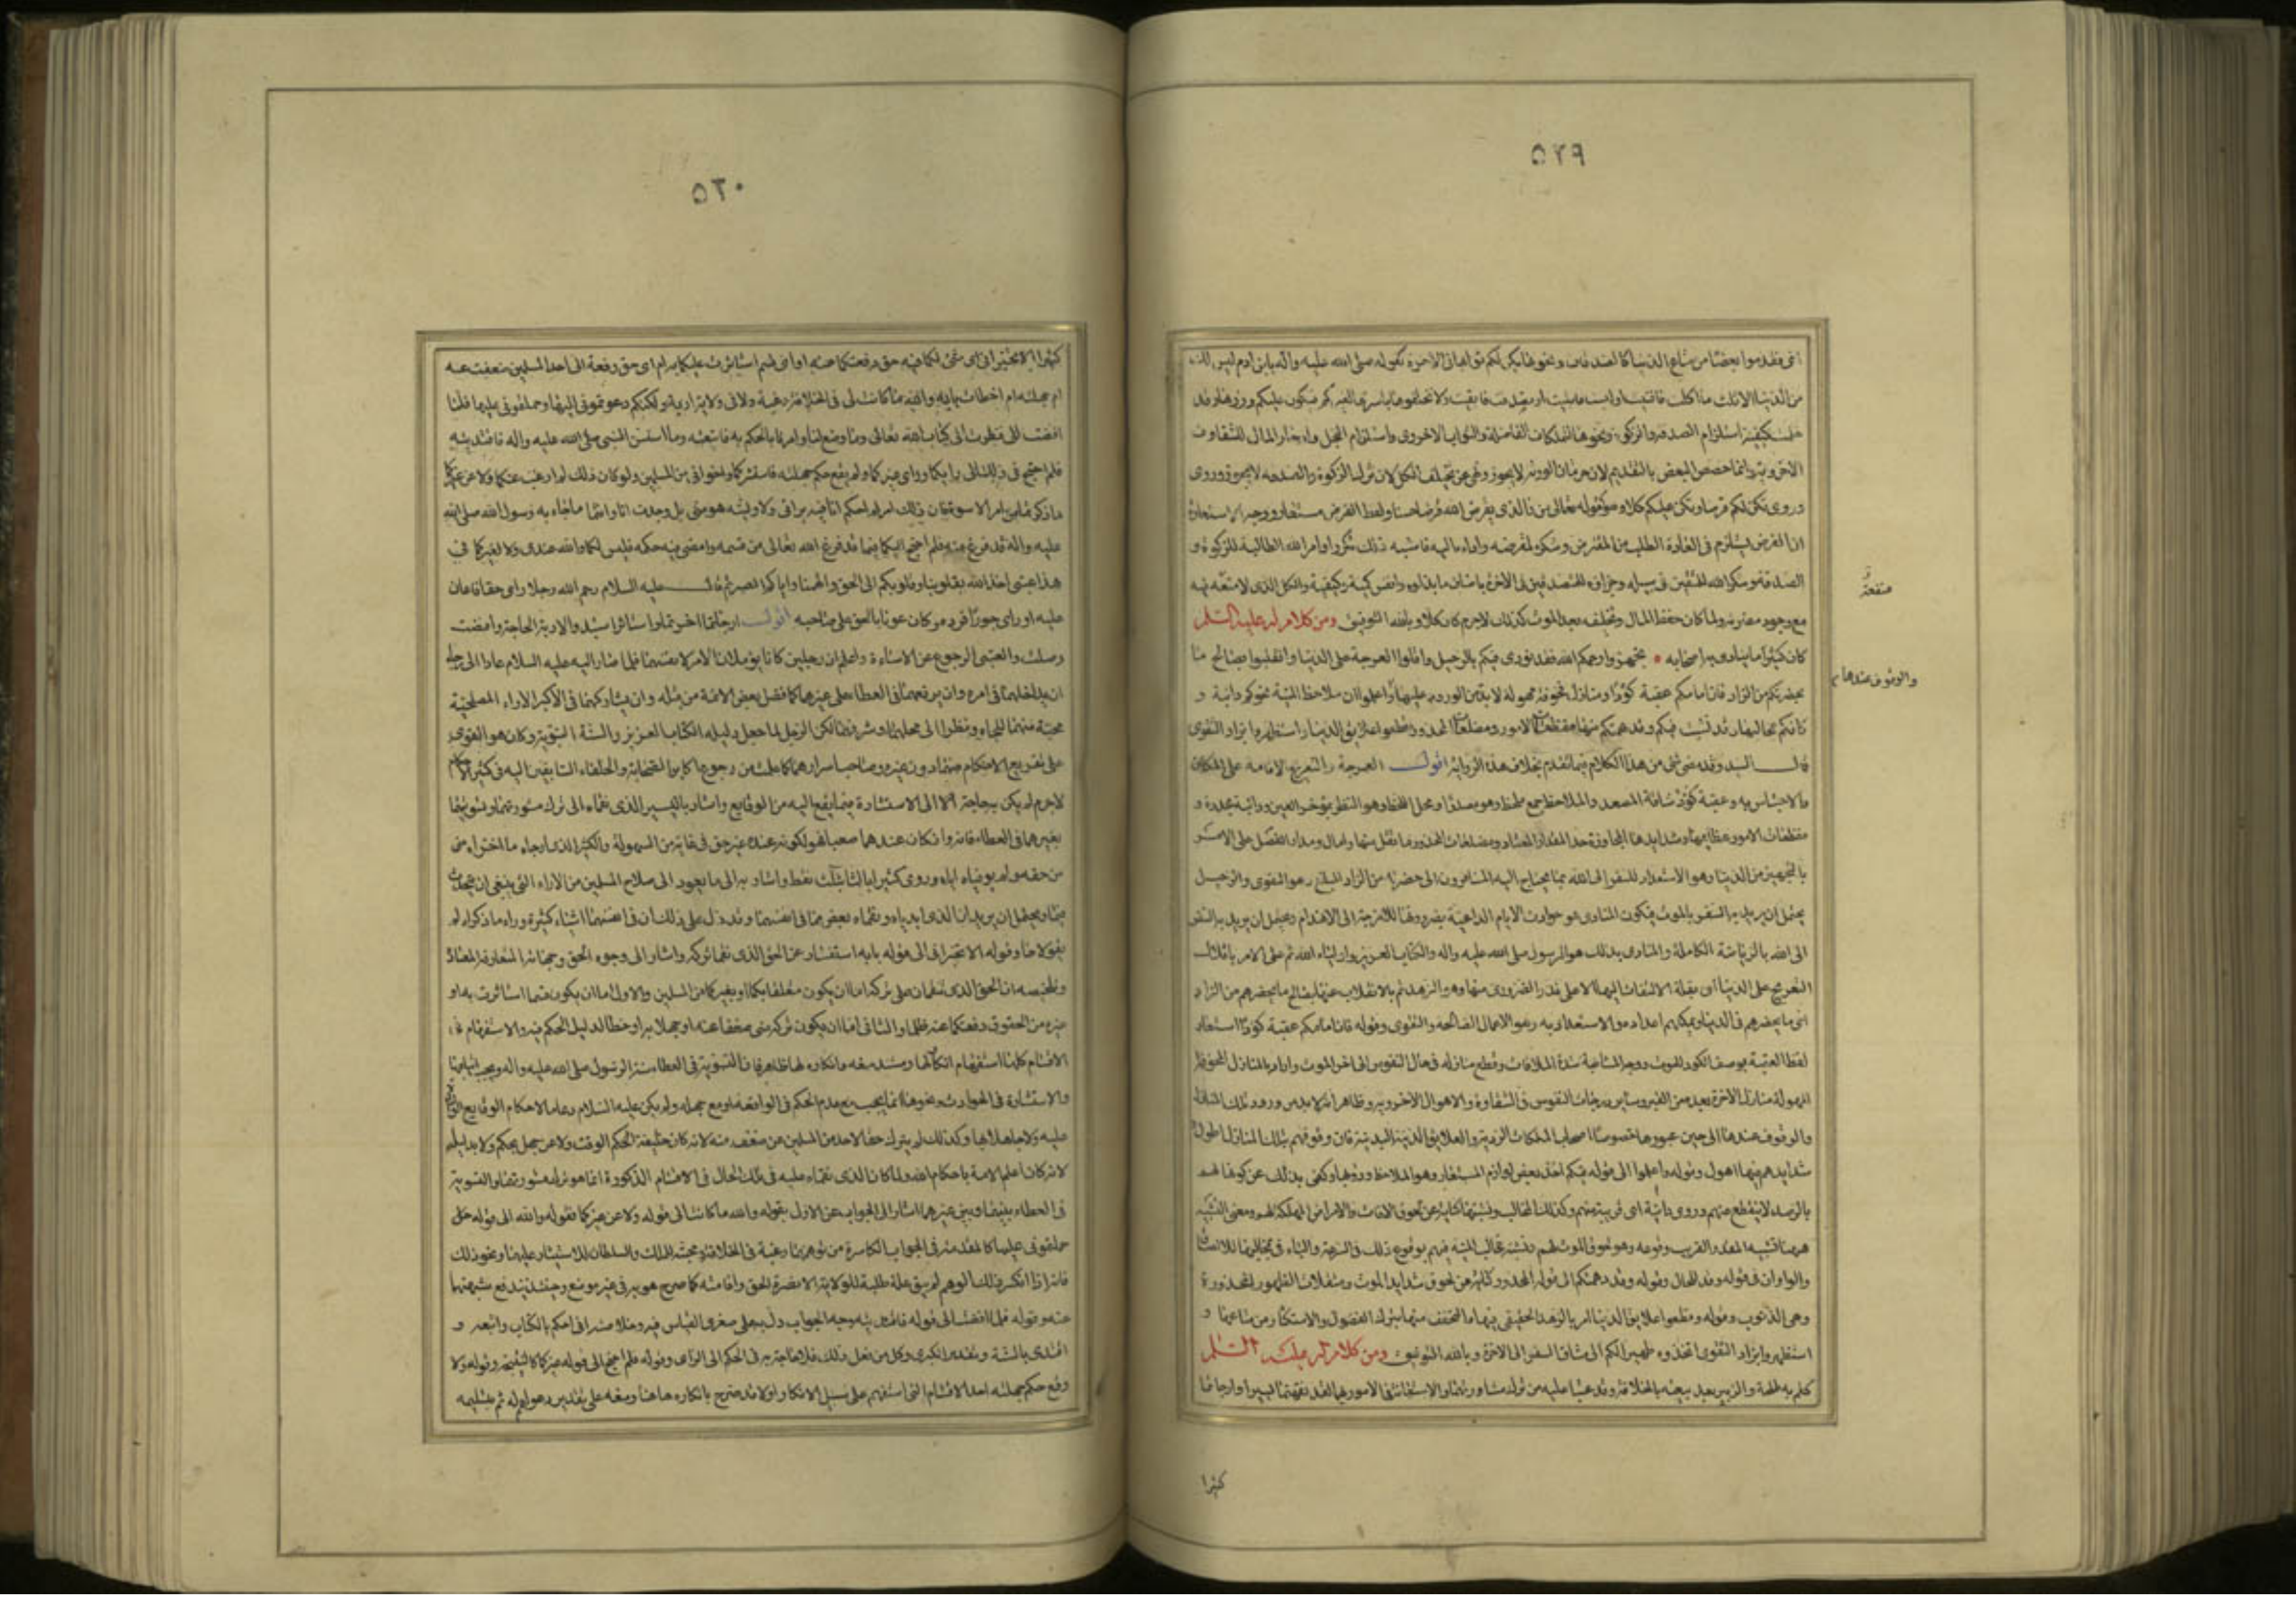 ٥٢٩
فقدموا بعضا من متاع الدنيا كالصدقات ونحوها يكن لكم ثوابها في الاخرة كقوله صلى الله عليه واله يا بن ادم ليس لك
من الدنيا الا ثلث ما اكلت فافنيت او لبست فابليت او تصدقت فابقيت ولا تخلفوها باسرها لغيركم فيكون عليكم وزرها وقد
علمت كيفية استلزام الصدقة والزكوة ونحوها للملكات الفاضلة والثواب الاخروي واستلزام البخل وادخار المال للشقاوة
الاخروية وانما خصص البعض بالتقديم لان حرمان الورثة لا يجوز ونهى عن تخليف الكل لان ترك الزكوة والصدقة لا يجوز وروى
وروى يكن لكم قرضا ويكن عليكم كلا وهو كقوله تعالى من ذا الذي يقرض الله قرضا حسنا ولفظ القرض مستعار ووجه الاستعارة
ان القرض يستلزم في العادة الطلب من المقترض وشكره لمقرضه واداءه اليه فاشبه ذلك تكرر اوامر الله الطالبة للزكوة و
الصدقة وشكر الله للمنفقين في سبيله وجزاؤه للمتصدقين في الاخرة باضعاف ما بذلوه وانفس كمية وكيفية والكل الذي لا منفعة فيه
مع وجود مضرته ولما كان حفظ المال وتخلفه بعد الموت كذلك لاجرم كان كلا وبالله التوفيق ومن كلام له عليه السلم
كان كثيرا ما ينادي به اصحابه تجهزوا رحمكم الله فقد نودي فيكم بالرحيل واقلوا العرجة على الدنيا وانقلبوا بصالح ما
بحضرتكم من الزاد فان امامكم عقبة كؤودا ومنازل مخوفة مهولة لا بد من الورود عليها واعلموا ان ملاحظ المنية نحوكم دانية و
كانكم بمخالبها وقد نشبت فيكم وقد دهمتكم منها مفظعات الامور ومضلعات المحذور فقطعوا علايق الدنيا واستظهروا بزاد التقوى
قال السيد وقد مضى شئ من هذا الكلام فيما تقدم بخلاف هذه الرواية اقول العرجة والتعريج الاقامة على المكان
والاحتباس به وعقبة كؤود شاقة المصعد والملاحظ جمع ملحظ وهو مصدر او محل اللحظ وهو النظر بمؤخر العين ودانية مجدة و
مفظعات الامور عظايمها وشدايدها المجاوزة حد المقدار المعتاد ومضلعات المحذور ما ثقل منها وامال ومدار الفصل على الامر
بالتجهيز من الدنيا وهو الاستعداد للسفر الى الله بما يحتاج اليه المسافرون الى حضرته من الزاد المبلغ وهو التقوى والرحيل
يحتمل ان يريد به السفر بالموت فيكون المنادي هو حوادث الايام الداعية بضرورتها للامزجة الى الانهدام ويحتمل ان يريد به السفر
الى الله بالرياضة الكاملة والمنادي بذلك هو الرسول صلى الله عليه واله والكتاب العزيز واولياء الله ثم على الامر باقلال
التعريج على الدنيا اي بقلة الالتفات اليها الا على قدر الضرورى منها وهو الزهد ثم بالانقلاب عنها بصالح ما يحضرهم من الزاد
اي ما يحضرهم في الدنيا ويمكنهم اعداده والاستعداد به وهو الاعمال الصالحة والتقوى وقوله فان امامكم عقبة كؤودا استعار
لفظ العقبة بوصف الكؤود للموت ووجه المشابهة شدة الملاقات وقطع منازله في حال النفوس الى اخر الموت واراد بالمنازل المخوفة
المهولة منازل الاخرة بعد من القبر وساير درجات النفوس في الشقاوة والاهوال الاخروية وظاهر انه لا بد من ورود تلك المنازل
والوقوف عندها الى حين عبورها خصوصا اصحاب الملكات الردية والعلايق الدنية البدنية فان وقوفهم بتلك المنازل اطول
شدايدهم فيها اهول وقوله واعلموا الى قوله فيكم اخذ بعض لوازم المستعار وهو الملاحظ ودنوها وكنى بذلك عن كونها لهم
بالرصد لا ينقطع عنهم وروى دانية اى قريبة منهم وكذلك المخالب ونشبتها كناية عن لحوق الافات والامراض المهلكة لهم ومعنى التشبيه
ههنا تشبيه المقدر القريب وقوعه وهو لحوق الموت لهم ونشبه مخالب المنية فيهم بوقوع ذلك في السرعة والباء في بمخالبها للالصاق
والواوات في قوله وقد للحال وقوله وقد دهمتكم الى قوله المحذور كناية عن لحوق شدايد الموت ومثقلات الظهور المحذورة
وهى الذنوب وقوله وقطعوا علايق الدنيا امر بالزهد الحقيقى فيها والتخفيف منها بترك الفضول والاستكثار من متاعها و
استظهروا بزاد التقوى اتخذوه ظهيرا لكم الى مشاق السفر الى الاخرة وبالله التوفيق ومن كلام له عليه السلم
كلم به طلحة والزبير بعد بيعته بالخلافة وقد عتبا عليه من ترك مشاورتهما والاستعانة في الامور بهما لقد نقمتما يسيرا وارجاتما
منفعة
والوقوف عندها
كثيرا
٥٣٠
كثيرا الا تخبراني اى شئ لكما فيه حق دفعتكما عنه او اى قسم استاثرت عليكما به ام اى حق رفعه الى احد المسلمين ضعفت عنه
ام جهلته ام اخطات بابه والله ما كانت لى في الخلافة رغبة ولا في ولاية اربة ولكنكم دعوتموني اليها وحملتموني عليها فلما
افضت الى نظرت الى كتاب الله تعالى وما وضع لنا وامرنا بالحكم به فاتبعته وما استسن النبي صلى الله عليه واله فاقتديته
فلم احتج في ذلك الى رايكما وراى غيركما ولم يقع حكم جهلته فاستشيركما واخواني من المسلمين ولو كان ذلك لم ارغب عنكما ولا عن غيركما
ما ذكرتما من امر الاسوة فان ذلك امر لم احكم انا فيه برايى ولا وليته هوى منى بل وجدت انا وانتما ما جاء به رسول الله صلى الله
عليه واله قد فرغ منه فلم احتج اليكما فيما قد فرغ الله تعالى من قسمه وامضى فيه حكمه فليس لكما والله عندى ولا لغيركما في
هذا عتبى اخذ الله بقلوبنا وقلوبكم الى الحق والهمنا واياكم الصبر ثم قال عليه السلام رحم الله رجلا راى حقا فاعان
عليه او راى جورا فرده وكان عونا بالحق على صاحبه اقول ارجاتما اخرتما واستاثر استبد والاربة الحاجة وافضت
وصلت والعتبى الرجوع عن الاساءة واعلم ان الرجلين كانا يؤملان الامر لانفسهما فلما صار اليه عليه السلام عادا الى رجاء
ان يداخلهما في امره وان يرفعهما في العطاء على غيرهما كما فضل بعض الائمة من قبله وان يشاركهما في الاكثر الاراء المصلحية
محبة منهما للجاه ونظرا الى محلهما وشرفهما لكن الرجل لما جعل دليله الكتاب العزيز والسنة النبوية وكان هو القوى
على تفريع الاحكام منهما دون غيره وصاحب اسرارهما كما علمت من رجوع اكابر الصحابة والخلفاء السابقين اليه في كثير الاحكام
لاجرم لم يكن به حاجة الى الاستشارة فيما يقع اليه من الوقايع واشار باليسير الذى نقماه الى ترك مشورتهما وتسويتهما
بغيرهما في العطاء فانه وان كان عندهما صعبا فهو لكونه عنده غير حق في غاية من السهولة والكثير الذى ارجاه ما اخراه من
من حقه ولم يوفياه اياه وروى كثيرا بالثاء بثلث نقط واشار به الى ما يعود الى صلاح المسلمين من الاراء التى ينبغى ان يتحدث
فيها ويحتمل ان يريد ان الذى ابدياه ونقماه بعض مما في انفسهما وقد دل على ذلك ان في انفسهما اشياء كثيرة وراء ما ذكراه لم
يقولاها وقوله الا تخبراني الى قوله بابه استفسار عن الحق الذى نقما تركه واشار الى وجوه الحق وجهاته المتعارفة المعتادة
وتلخيصه ان الحق الذى تنقمان على تركه اما ان يكون متعلقا بكما او بغيركما من المسلمين والاول اما ان يكون قسما استاثرت به او
غيره من الحقوق دفعتكما عنه ظلما والثاني اما ان يكون تركه منى ضعفا عنه او جهلا به او خطا لدليل الحكم فيه والاستفهام في
الاقسام كلها استفهام انكار لها ومستند منعه وانكاره لها ظاهر فان التسوية في العطاء سنة الرسول صلى الله عليه واله ويجب اتباعها
والاستشارة في الحوادث ونحوها انما يجب مع عدم الحكم في الواقعة او مع جهله ولم يكن عليه السلام عادما لاحكام الوقايع الواردة
عليه ولا جاهلا بها وكذلك لم يترك حقا لاحد من المسلمين عن ضعف منه لانه كان خليفة الحكم الوقت ولا عن جهل بحكم ولا بدليله
لانه كان اعلم الامة باحكام الله ولما كان الذى نقماه عليه في تلك الحال في الاقسام المذكورة انما هو ترك مشورتهما والتسوية
في العطاء بينهما وبين غيرهما اشار الى الجواب عن الاول بقوله والله ما كانت الى قوله ولا عن غيركما فقوله والله الى قوله
حملتموني عليها كالمقدمة في الجواب الكاسرة من توهمهما رغبة في الخلافة ومحبة للملك والسلطان للاستيثار عليهما ونحو ذلك
فانه اذا انكسر ذلك الوهم لم يبق علة طلبه للولاية الا نصرة الحق واقامته كما صرح هو به في غير موضع وحينئذ تندفع شبهتهما
عنه وقوله فلما افضت الى قوله فاقتديته وجه الجواب دل به على صغرى القياس فيه وخلاصته اني احكم بالكتاب واتبعه و
اقتدى بالسنة وتقدير الكبرى وكل من فعل ذلك فلا حاجة به في الحكم الى الراى وقوله فلم احتج الى قوله غيركما كالنتيجة وقوله ولا
وقع حكم جهلته احد الاقسام التى استفهم على سبيل الانكار اولا قد صرح بانكاره هاهنا ومنعه على تقدير دعواهم له ثم بتسليمه